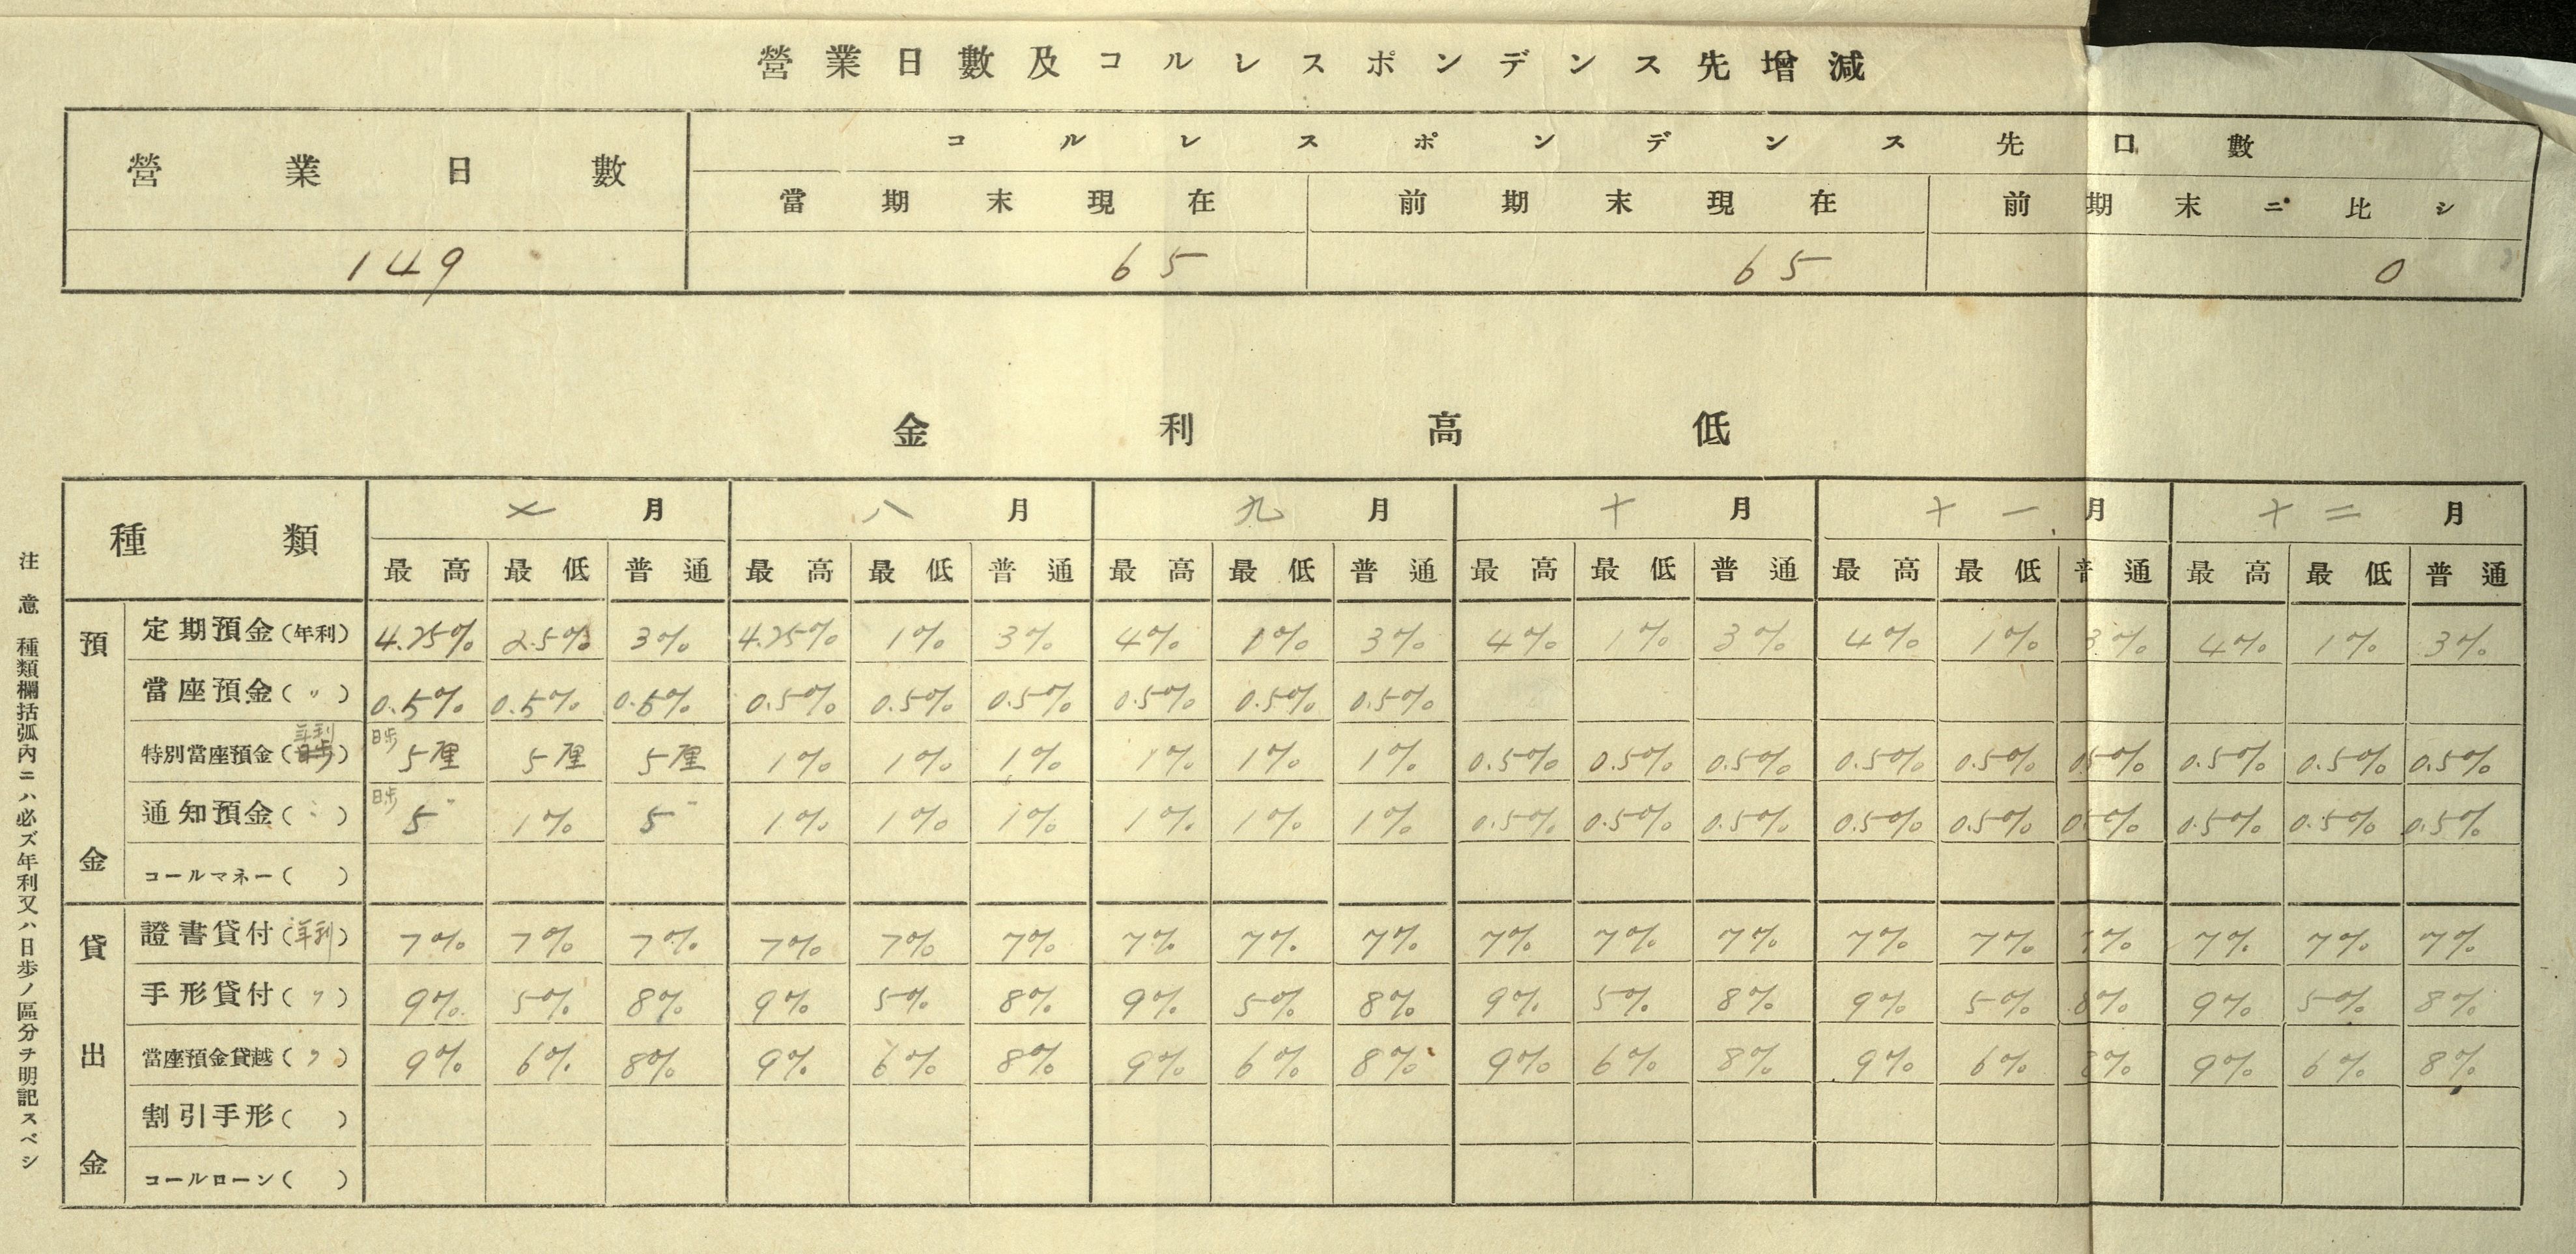 營業日數及コルレスポンデンス先增減
營業日數
コルレスポンデンス先口數
當期末現在 前期末現在 前期末ニ比シ
149 65 65 0
金利高低
種類 七月 八月 九月 十月 十一月 十二月
最高 最低 普通 最高 最低 普通 最高 最低 普通 最高 最低 普通 最高 最低 普通 最高 最低 普通
預金
定期預金(年利) 4.25% 2.5% 3% 4.25% 1% 3% 4% 1% 3% 4% 1% 3% 4% 1% 3% 4% 1% 3%
當座預金(〃) 0.5% 0.5% 0.5% 0.5% 0.5% 0.5% 0.5% 0.5% 0.5%
特別當座預金(年利) 日歩 5厘 5厘 5厘 1% 1% 1% 1% 1% 1% 0.5% 0.5% 0.5% 0.5% 0.5% 0.5% 0.5% 0.5% 0.5%
通知預金(〃) 日歩 5〃 1% 5〃 1% 1% 1% 1% 1% 1% 0.5% 0.5% 0.5% 0.5% 0.5% 0.5% 0.5% 0.5% 0.5%
コールマネー( )
貸出金
證書貸付(年利) 7% 7% 7% 7% 7% 7% 7% 7% 7% 7% 7% 7% 7% 7% 7% 7% 7% 7%
手形貸付(〃) 9% 5% 8% 9% 5% 8% 9% 5% 8% 9% 5% 8% 9% 5% 8% 9% 5% 8%
當座預金貸越(〃) 9% 6% 8% 9% 6% 8% 9% 6% 8% 9% 6% 8% 9% 6% 8% 9% 6% 8%
割引手形( )
コールローン( )
注意 種類欄括弧內ニハ必ズ年利又ハ日歩ノ區分ヲ明記スベシ